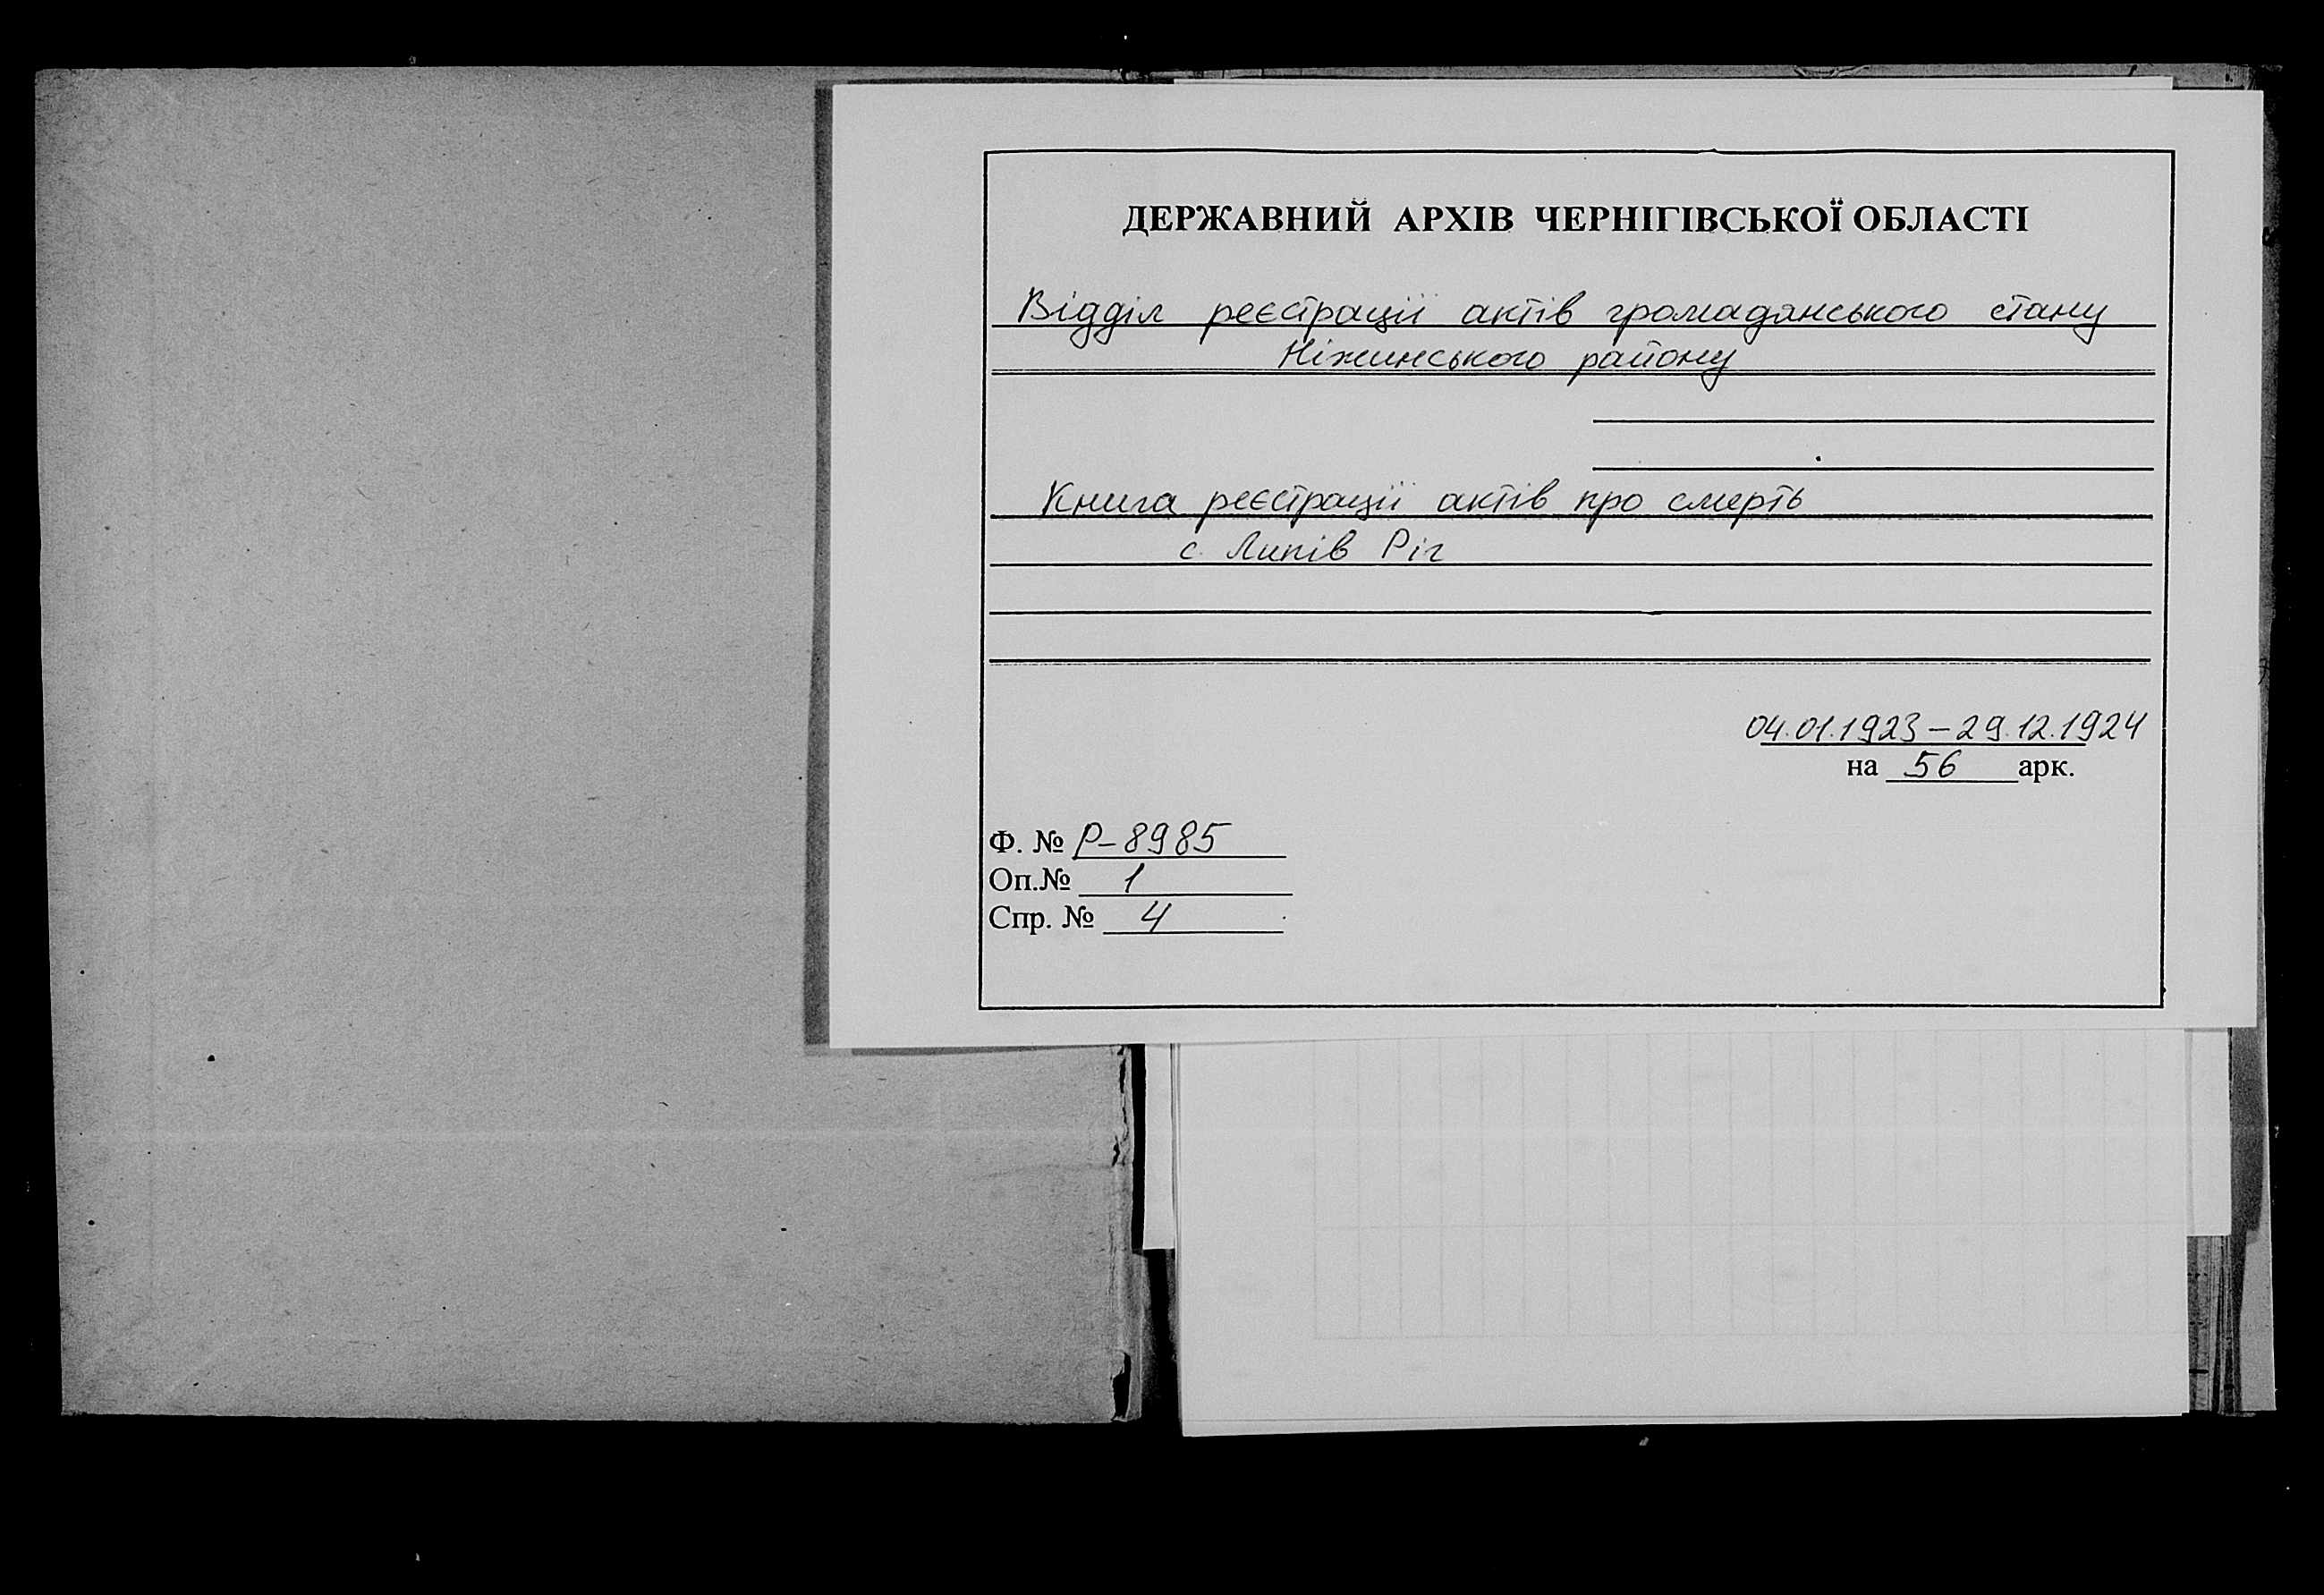 ДЕРЖАВНИЙ АРХІВ ЧЕРНІГІВСЬКОЇ ОБЛАСТІ
Відділ реєстрації актів громадянського стану
Ніжинського району
Книга реєстрації актів про смерть
с. Липів Ріг
04.01.1923 – 29.12.1924
на 56 арк.
Ф. № Р-8985
Оп.№ 1
Спр. № 4